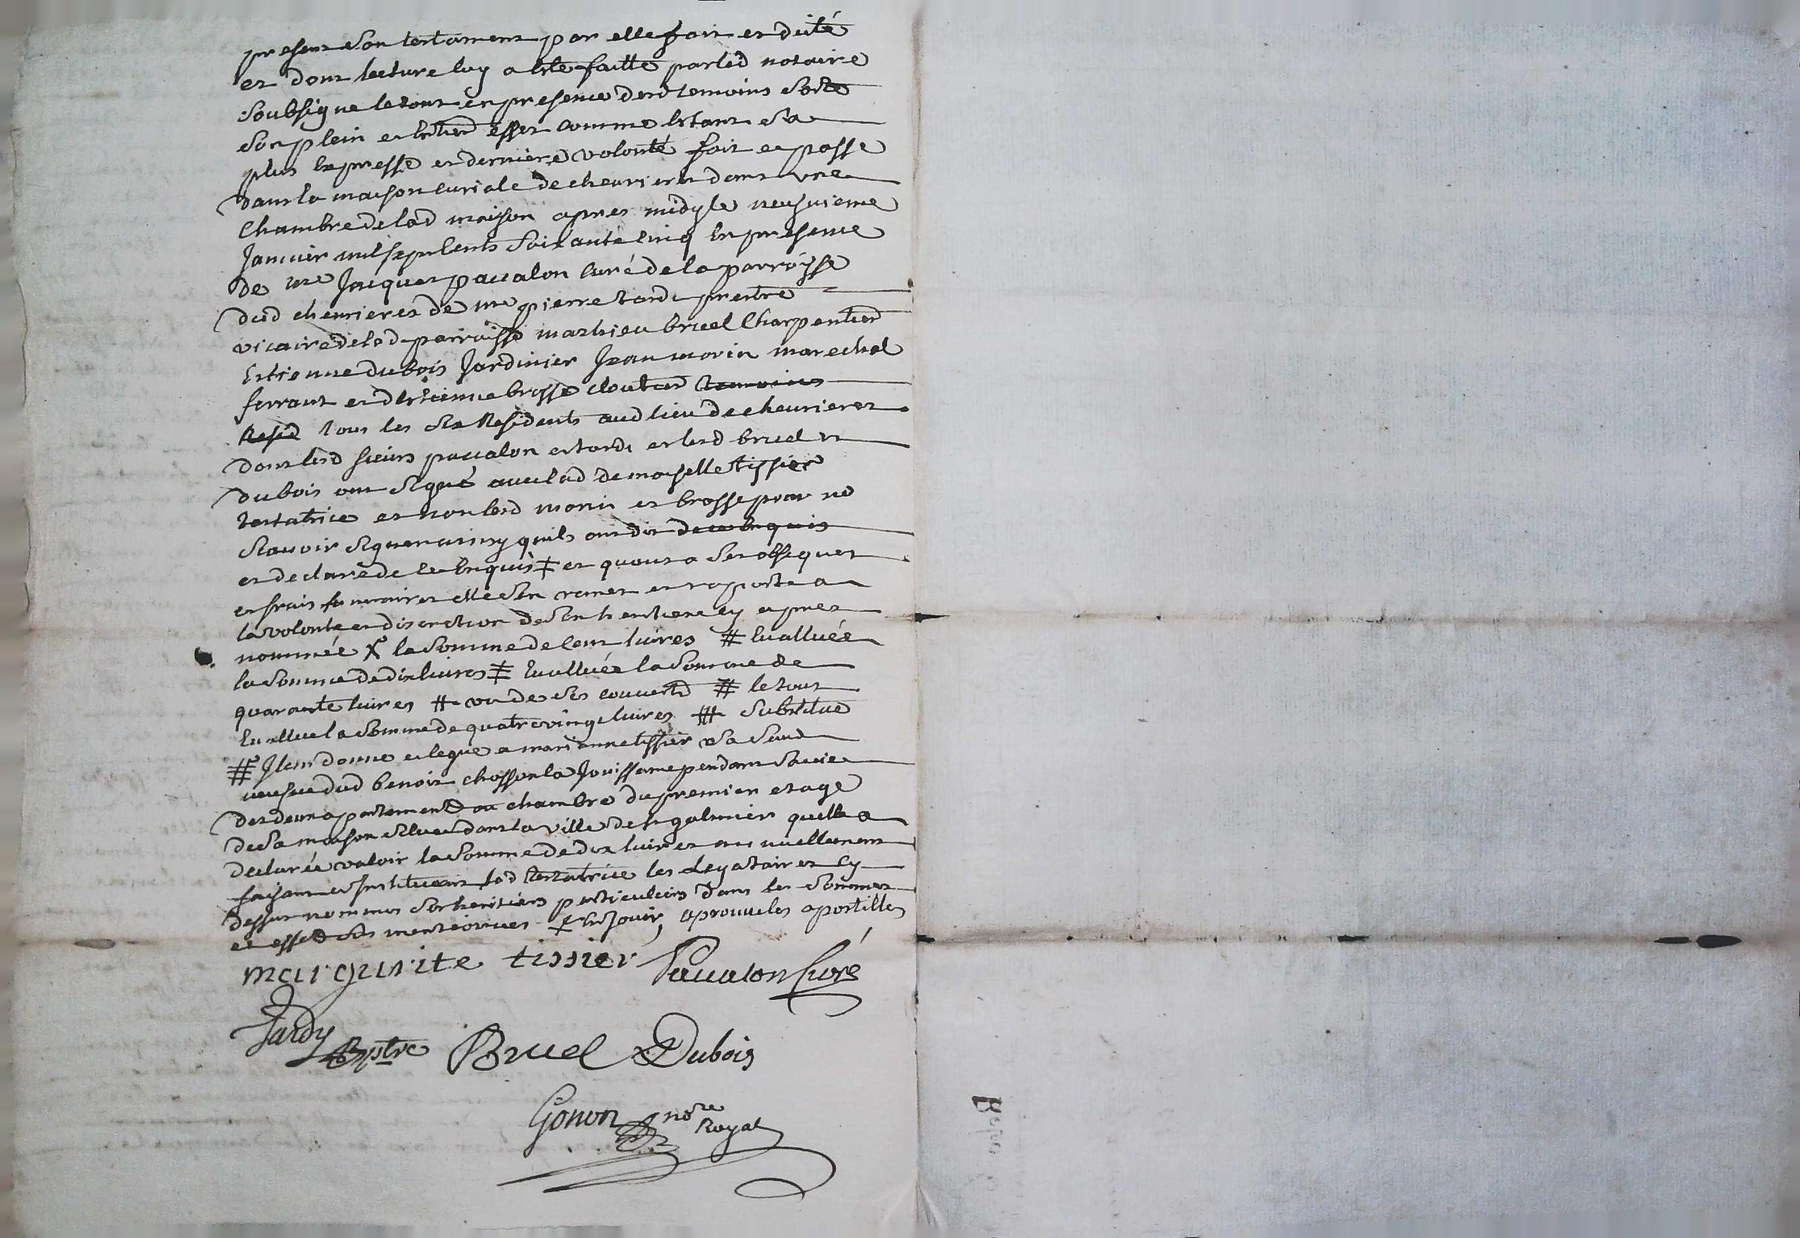 present son testament par elle fait et dicté
et dont lecture luy a ete faitte par led notaire
soubsigne le tout en presence desd temoins sorte
son plein et entier effet comme etant sa
plus expresse et derniere volonté fait et passé
dans la maison curiale de chevrieres dans une
chambre de lad maison apres midy le neufvieme
janvier mil sept cents soixante cinq en presence
de mre jacques pacalon curé de la parroisse
dud chevrieres de mre pierre tardi prestre
vicaire de lad parroisse mathieu bruel charpentier
estienne dubois jardinier jean morin marechal
ferrant et d'estienne brosse cloutier temoins
resid tous les six residents aud lieu de chevrieres
dont lesd sieurs pacalon et tardi et lesd bruel et
dubois ont signé avec lad demoiselle tissier
testatrice et non lesd morin et brosse pour ne
scavoir signer ainsy quils ont dit de ce enquis
et declaré de ce enquis ‡ et quant a ses obseques
et frais funeraires elle s'en remet et raporte a
la volonte et discretion de son heritiere cy apres
nommée X la somme de cent livres # evalluée
la somme de dix livres ‡ evalluée la somme de
quarante livres # de six couverts # le tout
evallué la somme de quatre vingt livres # substitue
# item donne et legue a marianne tissier sa sœur
veufve dud benoit chosson la jouissance pendant sa vie
des deux apartements ou chambre du premier etage
de sa maison situee dans la ville de st galmier quelle a
declarée valoir la somme de dix livres annuellement
faisant et instituant lad testatrice les legataires cy
dessus nommes ses heritiers particuliers dans les sommes
et effets mentionnes ‡ enjouir, aprouvé les apostilles
marguerite tissier Pacalon Curé
Tardy Bptre Bruel Dubois
Gonon nore
Royal